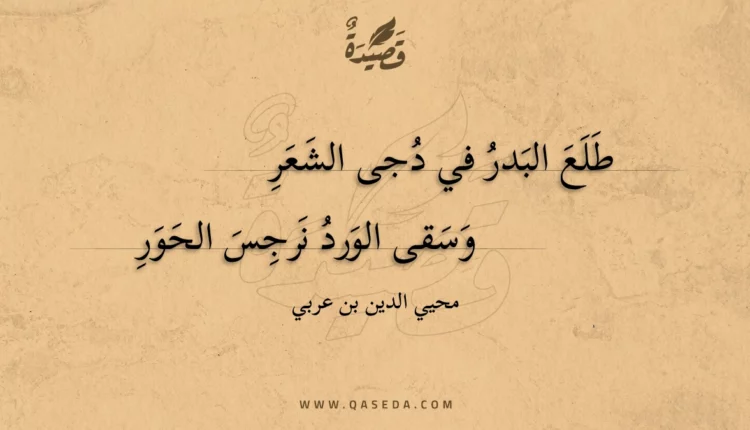 قَصِيدَةٌ
طَلَعَ البَدرُ في دُجى الشَعَرِ
وَسَقى الوَردُ نَرجِسَ الحَوَرِ
محيي الدين بن عربي
WWW.QASEDA.COM